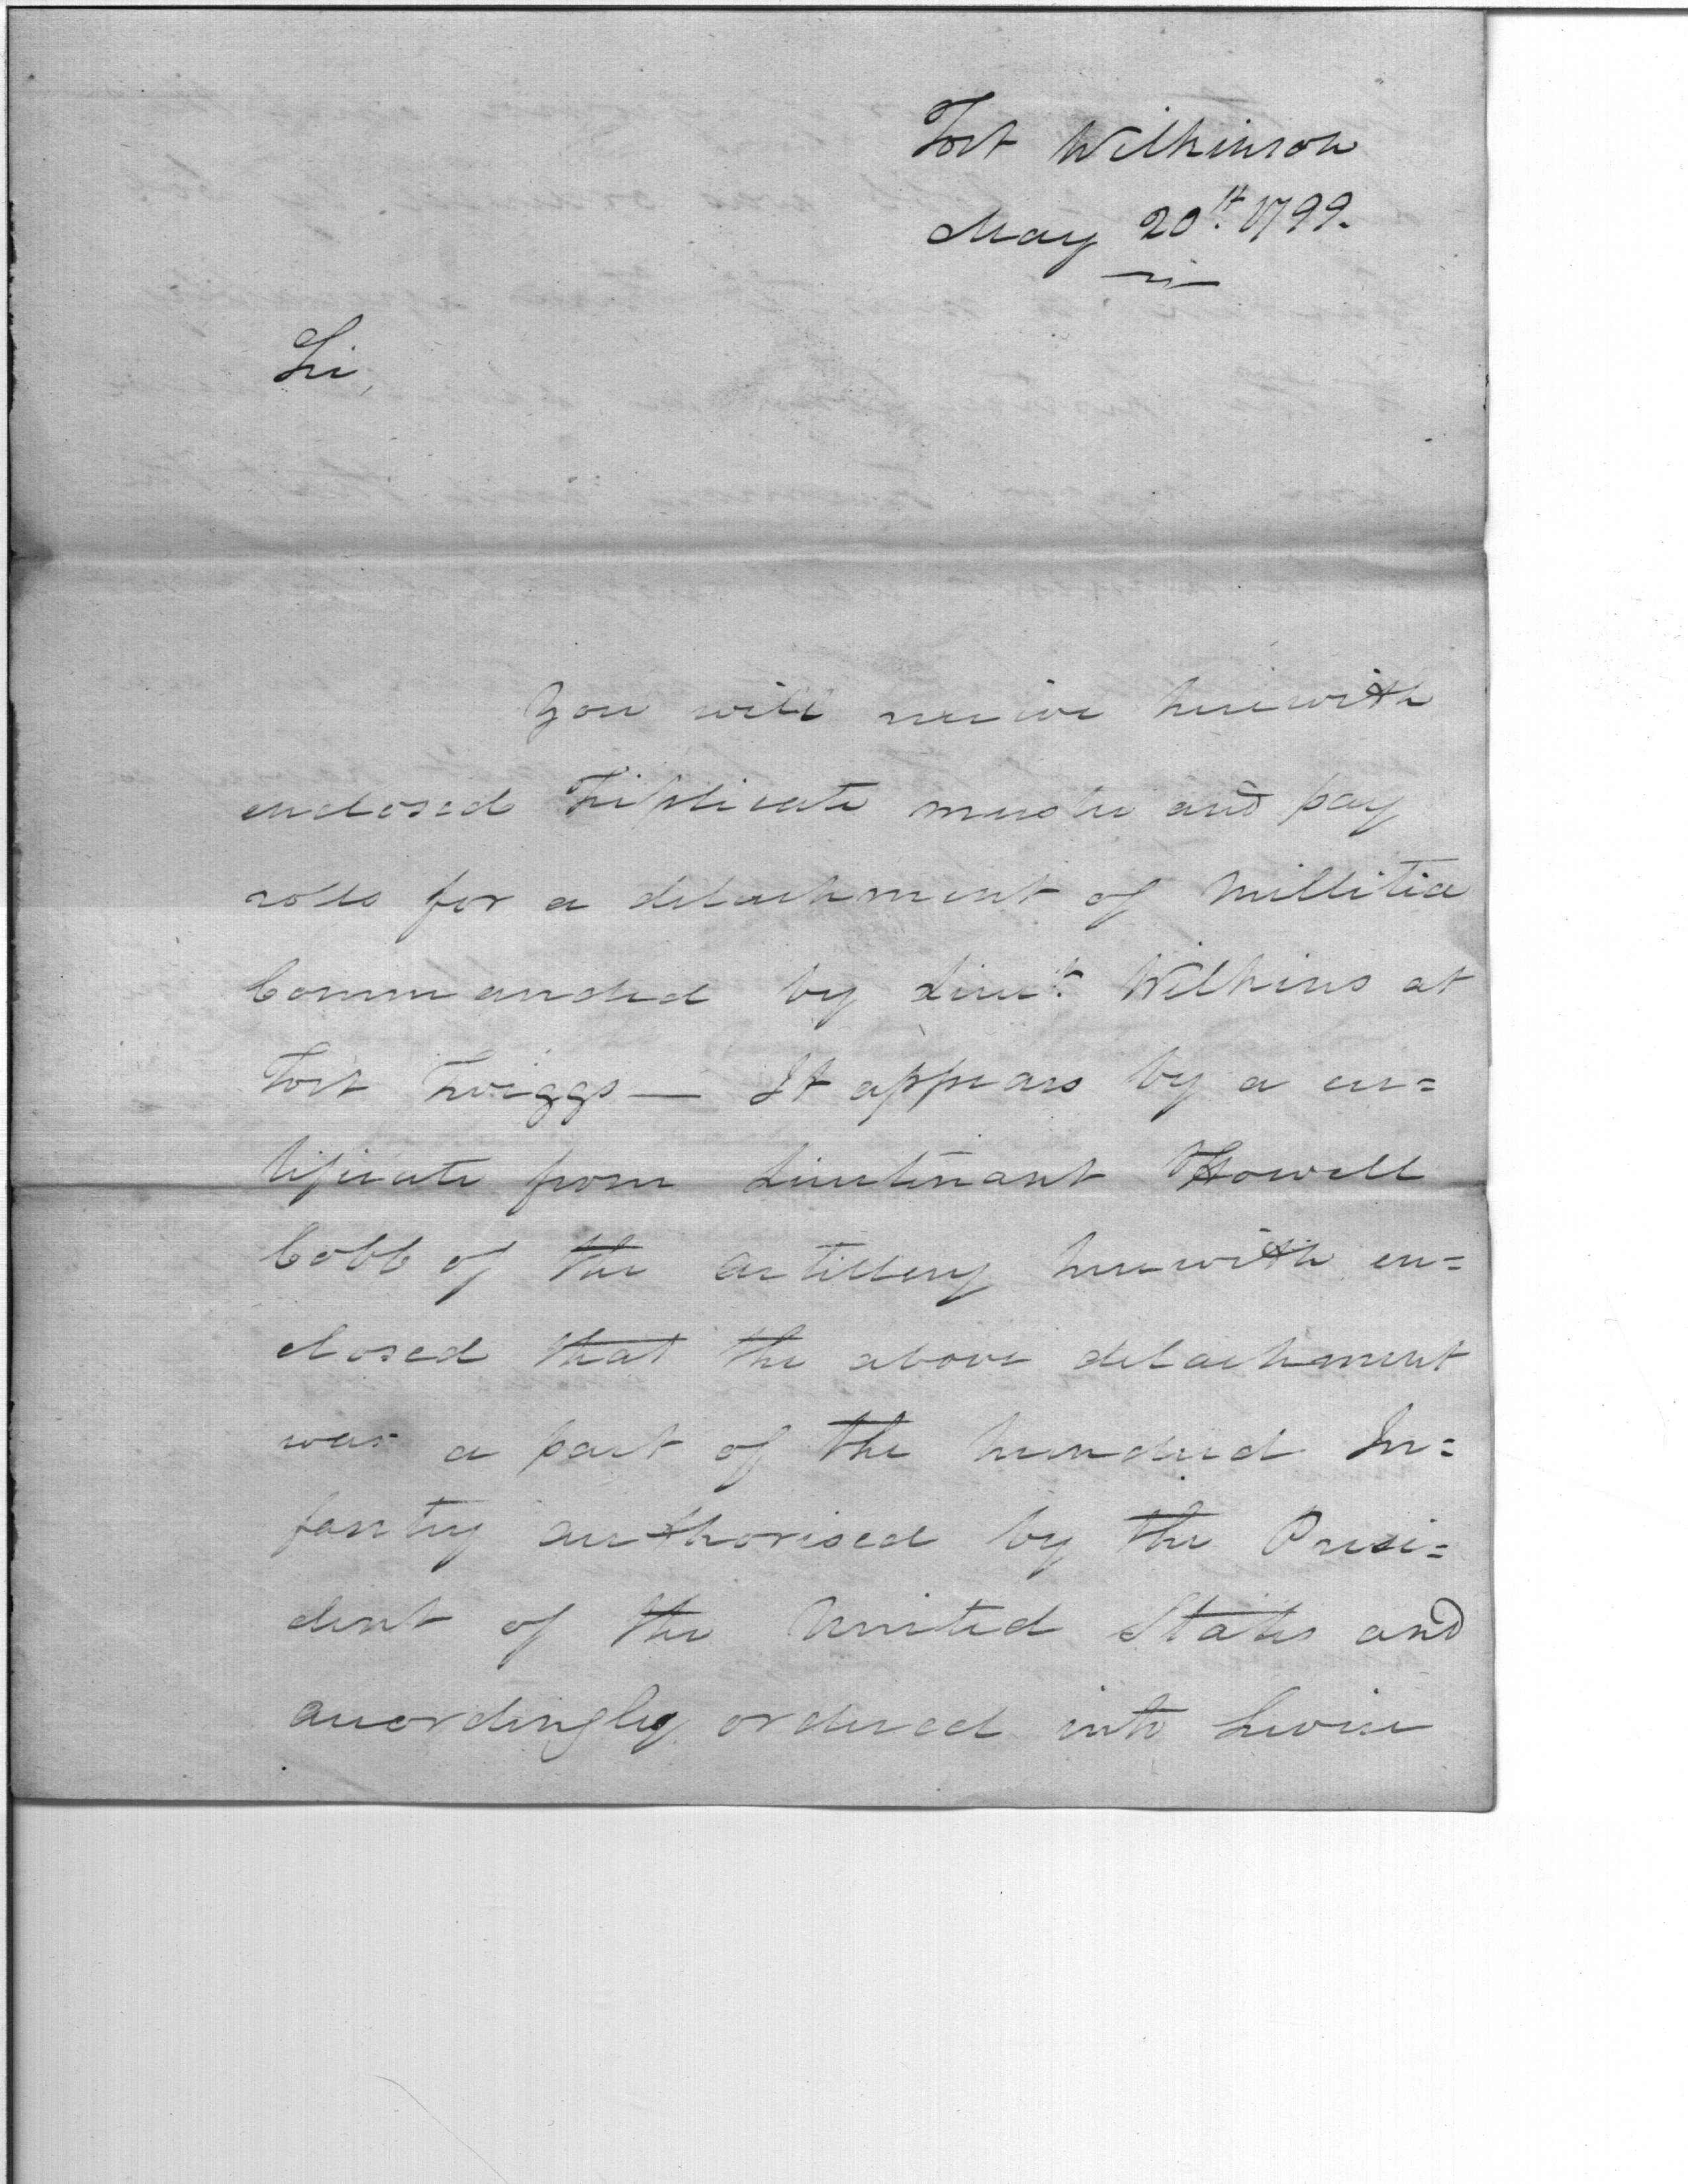 Fort Wilkinson
May 20th. 1799.
Sir,
You will receive herewith
enclosed Triplicate muster and pay
rolls for a detachment of Millitia
Commanded by Lieut. Wilkins at
Fort Twiggs — It appears by a cer=
tificate from Lieutenant Howell
Cobb of the artillery herewith en=
closed that the above detachment
was a part of the hundred In=
fantry authorised by the Presi=
dent of the United States and
accordingly ordered into Service